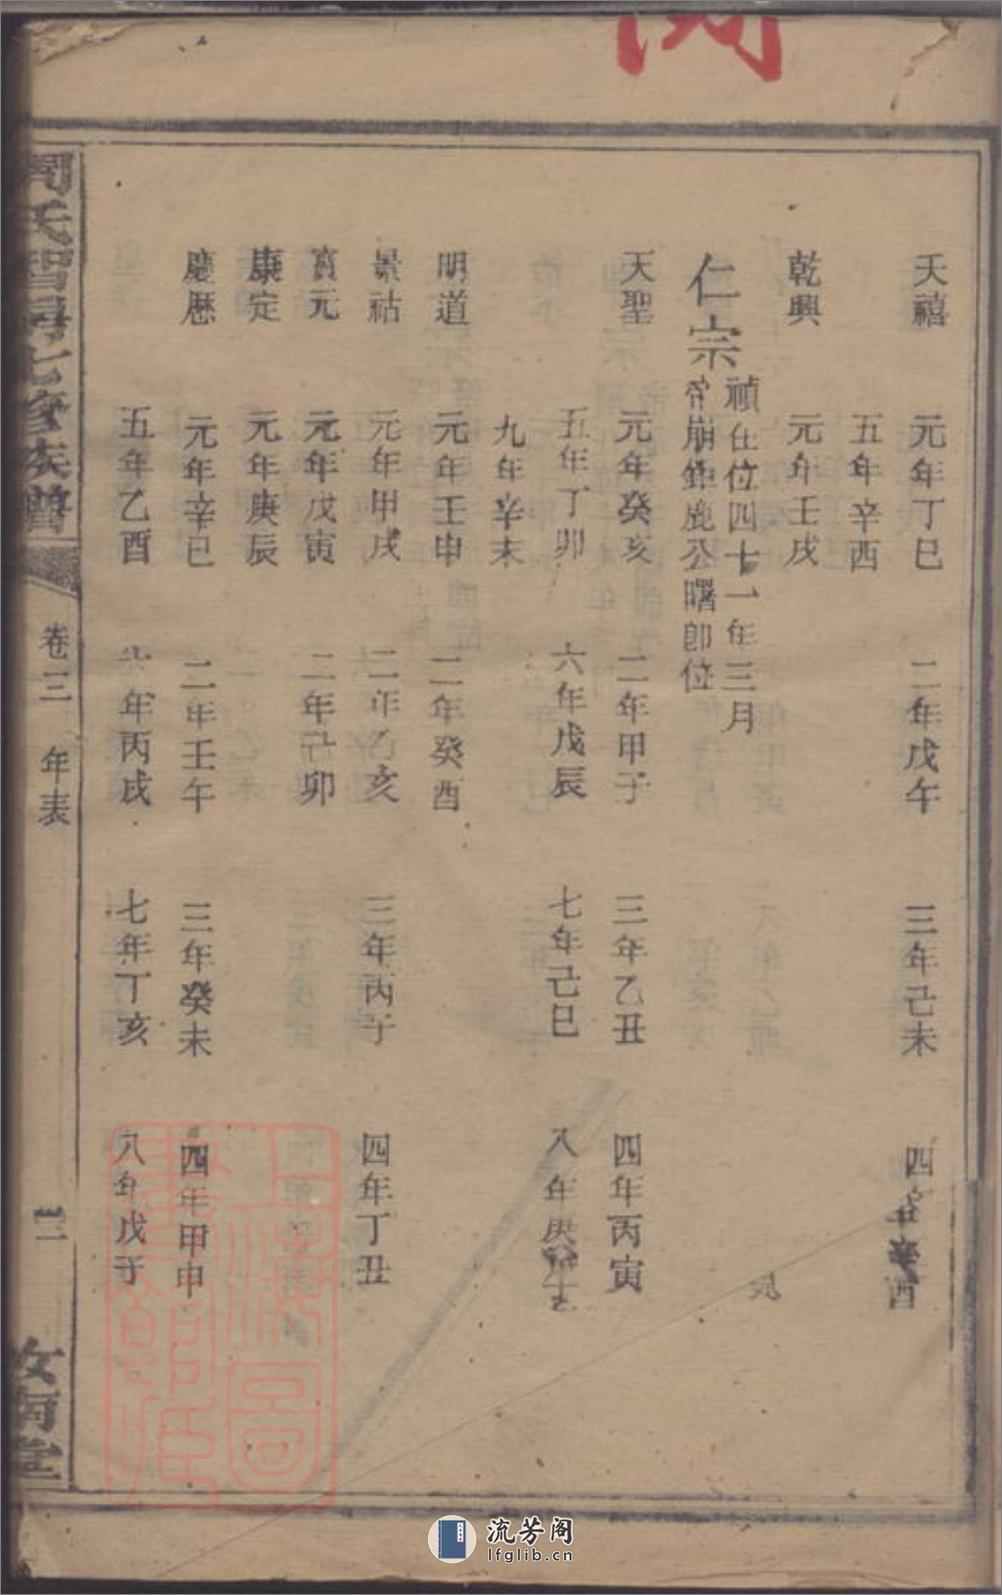 天禧 元年丁巳 二年戊午 三年己未 四 酉
五年辛酉
乾興 元年壬戌
仁宗 禎在位四十一年三月
帝崩鉅鹿公曙即位
天聖 元年癸亥 二年甲子 三年乙丑 四年丙寅
五年丁卯 六年戊辰 七年己巳 八年庚
九年辛未
明道 元年壬申 二年癸酉
景祐 元年甲戌 二年乙亥 三年丙子 四年丁丑
寶元 元年戊寅 二年己卯
康定 元年庚辰
慶歷 元年辛巳 二年壬午 三年癸未 四年甲申
五年乙酉 六年丙戌 七年丁亥 八年戊子
周氏智房七修族譜 卷三 年表 三 汝南堂
上海圖書館藏
流芳阁
lfglib.cn